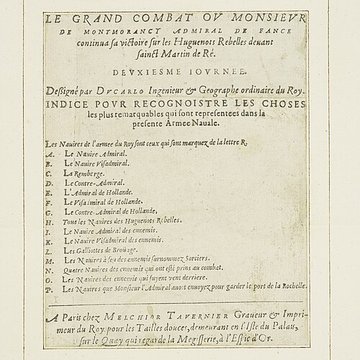 LE GRAND COMBAT OV MONSIEVR
DE MONTMORANCY ADMIRAL DE FANCE
continua sa victoire sur les Huguenots Rebelles deuant
sainct Martin de Ré.
DEVXIESME IOVRNEE.
Desseigné par DVCARLO Ingenieur & Geographe ordinaire du Roy.
INDICE POVR RECOGNOISTRE LES CHOSES
les plus remarquables qui sont representees dans la
presente Armee Nauale.
Les Nauires de l'armee du Roy sont ceux qui sont marquez de la lettre R.
A. Le Nauire Admiral.
B. Le Nauire Visadmiral.
C. La Remberge.
D. Le Contre-Admiral.
E. L'Admiral de Hollande.
F. Le Visadmiral de Hollande.
G. Le Contre-Admiral de Hollande.
H. Tous les Nauires des Huguenots Rebelles.
I. Le Nauire Admiral des ennemis.
K. Le Nauire Visadmiral des ennemis.
L. Les Galliottes de Brouage.
M. Les Nauires à feu des ennemis surnommez Sorciers.
N. Quatre Nauires des ennemis qui ont esté prins au combat.
O. Les Nauires des ennemis qui fuyent vent derriere.
P. Les Nauires que Monsieur l'Admiral auoit enuoyez pour garder le port de la Rochelle.
A Paris chez MELCHIOR TAVERNIER Graueur & Impri-
meur du Roy, pour les Tailles douces, demeurant en l'Isle du Palais,
sur le Quay qui regarde la Megisserie, à l'Espic d'Or.